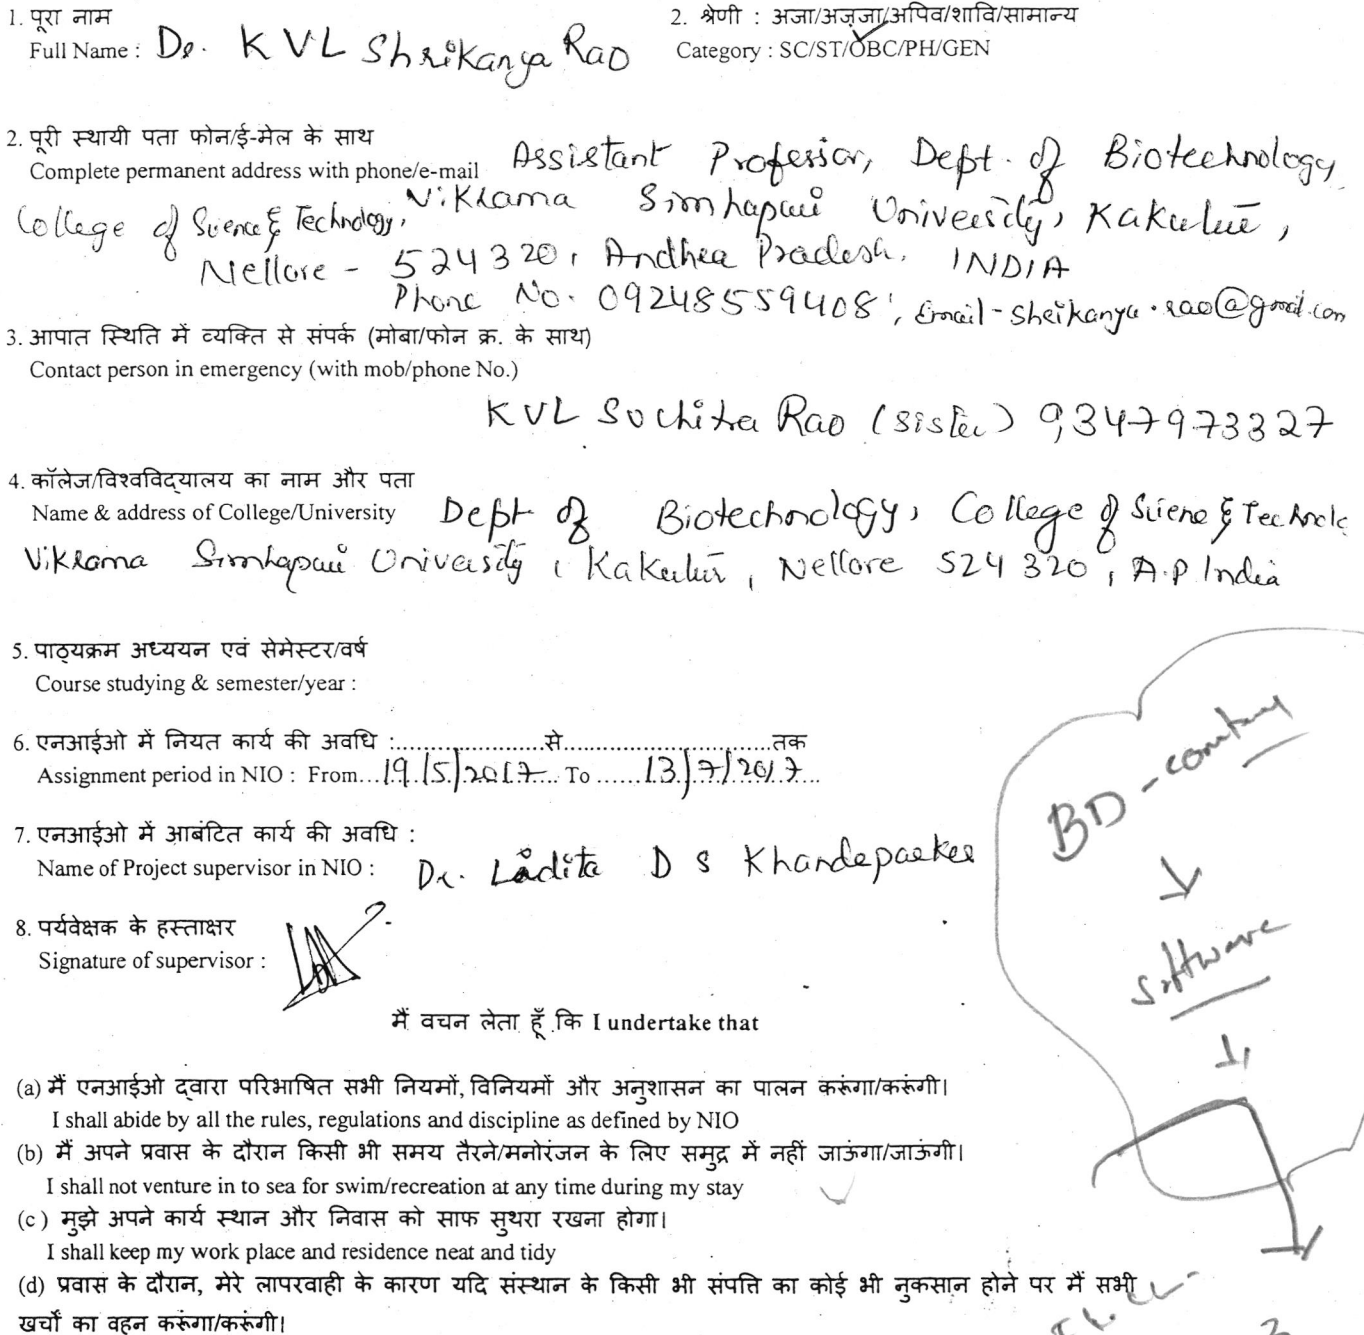 1. पूरा नाम
Full Name : Dr. KVL Shrikanya Rao
2. श्रेणी : अजा/अज़जा/अपिव/शावि/सामान्य
Category : SC/ST/OBC/PH/GEN
2. पूरी स्थायी पता फोन/ई-मेल के साथ
Complete permanent address with phone/e-mail Assistant Professor, Dept. of Biotechnology
College of Science & Technology, Vikrama Simhapuri University, Kakutur,
Nellore - 524320, Andhra Pradesh, INDIA
Phone No. 09248559408, Email - shrikanya.rao@gmail.com
3. आपात स्थिति में व्यक्ति से संपर्क (मोबा/फोन क्र. के साथ)
Contact person in emergency (with mob/phone No.)
KVL Suchitra Rao (Sister) 9347973327
4. कॉलेज/विश्वविद्यालय का नाम और पता
Name & address of College/University Dept of Biotechnology, College of Science &
Vikrama Simhapuri University, Kakutur, Nellore 524320, A.P India
5. पाठ्यक्रम अध्ययन एवं सेमेस्टर/वर्ष
Course studying & semester/year :
6. एनआईओ में नियत कार्य की अवधि :.....................से.............................तक
Assignment period in NIO : From...19/5/2017... To ......13/7/2017...
7. एनआईओ में आबंटित कार्य की अवधि :
Name of Project supervisor in NIO : Dr. Lidita D S Khandeparker
8. पर्यवेक्षक के हस्ताक्षर
Signature of supervisor :
BD-
↓
Software
↓
मैं वचन लेता हूँ कि I undertake that
(a) मैं एनआईओ द्वारा परिभाषित सभी नियमों, विनियमों और अनुशासन का पालन करूंगा/करूंगी।
I shall abide by all the rules, regulations and discipline as defined by NIO
(b) मैं अपने प्रवास के दौरान किसी भी समय तैरने/मनोरंजन के लिए समुद्र में नहीं जाऊंगा/जाऊंगी।
I shall not venture in to sea for swim/recreation at any time during my stay
(c) मुझे अपने कार्य स्थान और निवास को साफ सुथरा रखना होगा।
I shall keep my work place and residence neat and tidy
(d) प्रवास के दौरान, मेरे लापरवाही के कारण यदि संस्थान के किसी भी संपत्ति का कोई भी नुकसान होने पर मैं सभी
खर्चों का वहन करूंगा/करूंगी।